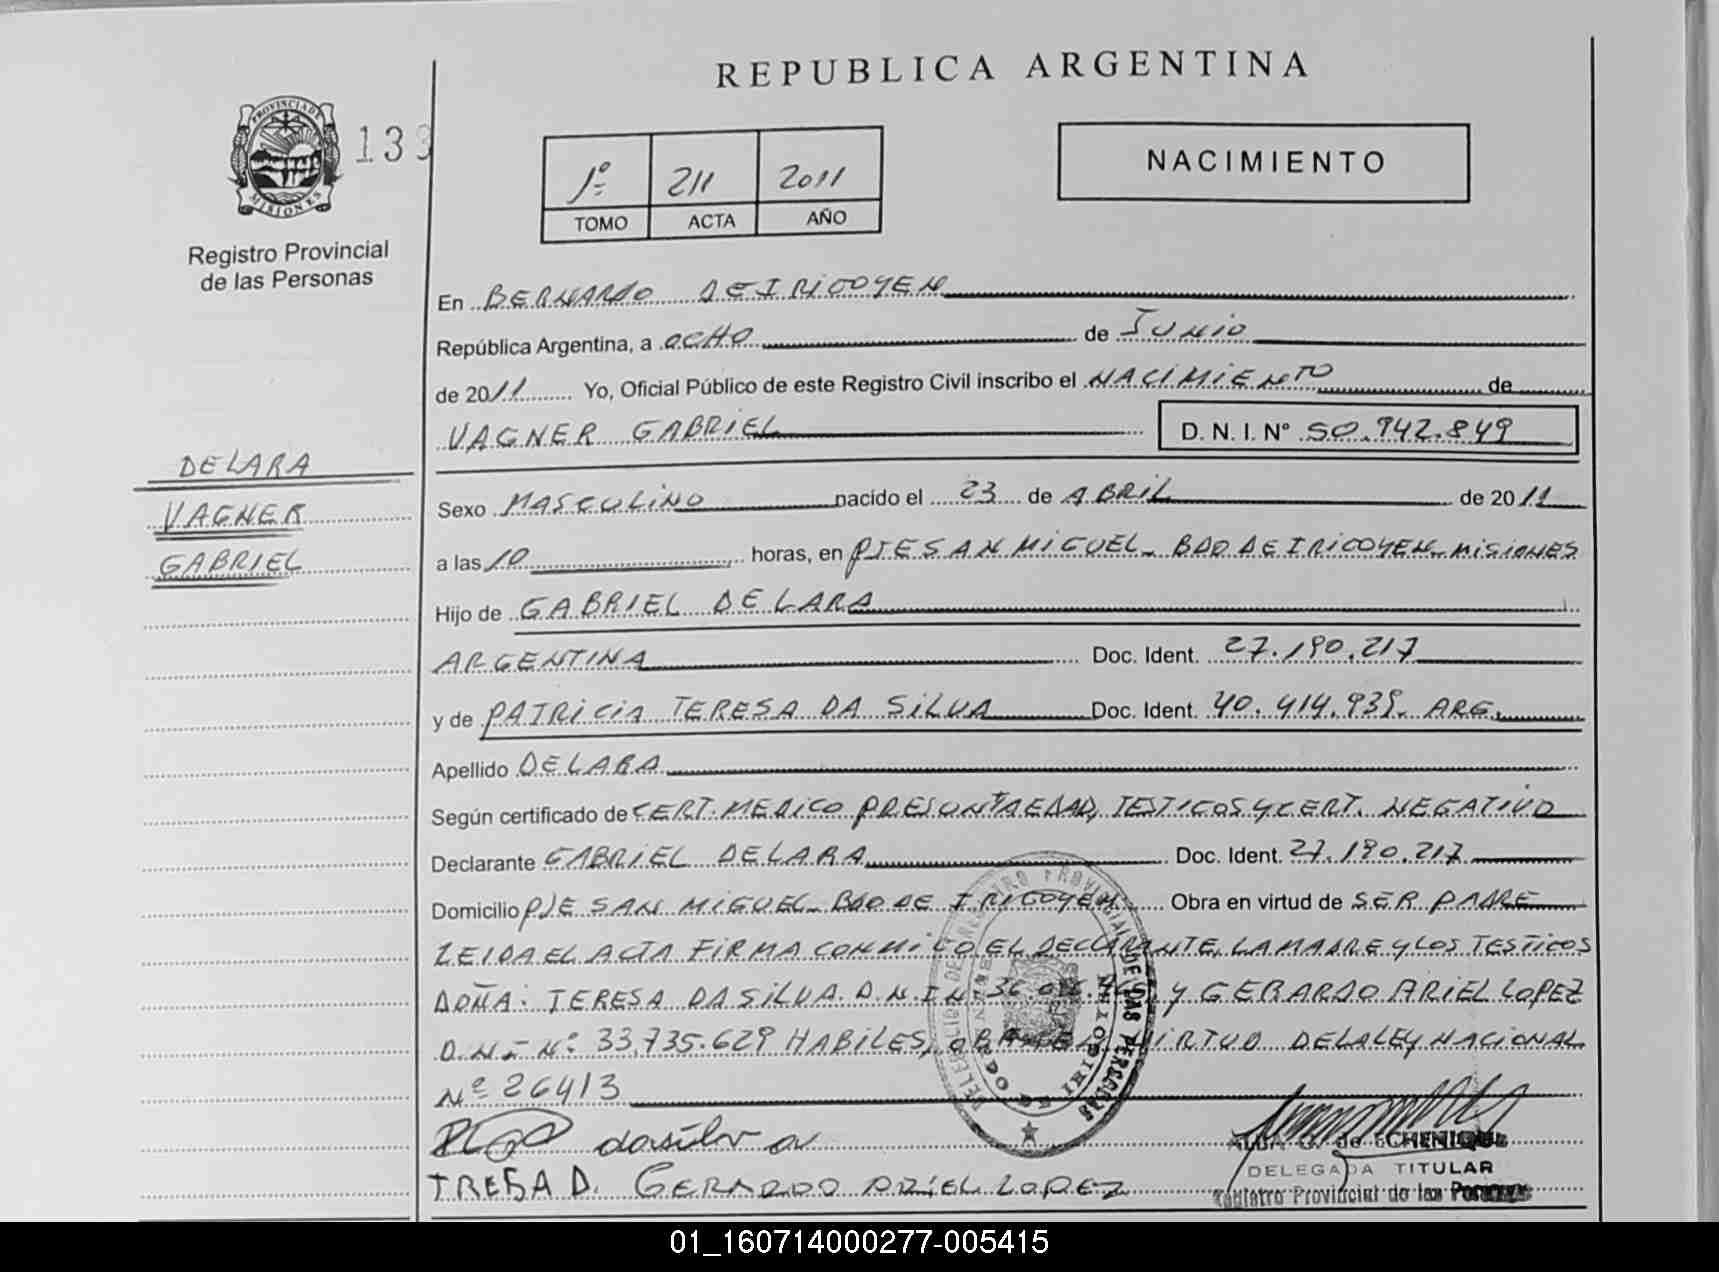 REPUBLICA ARGENTINA
PROVINCIA DE MISIONES
133
Registro Provincial
de las Personas
1º 211 2011
TOMO ACTA AÑO
NACIMIENTO
En BERNARDO DE IRIGOYEN
República Argentina, a OCHO de JUNIO
de 2011 Yo, Oficial Público de este Registro Civil inscribo el NACIMIENTO de
VAGNER GABRIEL D. N. I. Nº 50.942.849
DELARA
VAGNER
GABRIEL
Sexo MASCULINO nacido el 23 de ABRIL de 2011
a las 10 horas, en PJE SAN MIGUEL - BDO DE IRIGOYEN - MISIONES
Hijo de GABRIEL DELARA
ARGENTINA Doc. Ident. 27.190.217
y de PATRICIA TERESA DA SILVA Doc. Ident. 40.414.939. ARG.
Apellido DELARA
Según certificado de CERT. MEDICO PRESUNTA EDAD, TESTIGOS Y CERT. NEGATIVO
Declarante GABRIEL DELARA Doc. Ident. 27.190.217
Domicilio PJE SAN MIGUEL - BDO DE IRIGOYEN Obra en virtud de SER PADRE
LEIDA EL ACTA FIRMA CONMIGO EL DECLARANTE, LA MADRE Y LOS TESTIGOS
DOÑA: TERESA DA SILVA. D.N.I Nº Y GERARDO ARIEL LOPEZ
D.N.I Nº 33.735.629 HABILES, VIRTUD DE LA LEY NACIONAL
Nº 26413
dasilva
TRESA D. GERARDO ARIEL LOPEZ
DELEGACION DE REGISTRO PROVINCIAL DE LAS PERSONAS
BERNARDO DE IRIGOYEN
ALBA G. de ECHENIQUE
DELEGADA TITULAR
Registro Provincial de las Personas
01_160714000277-005415